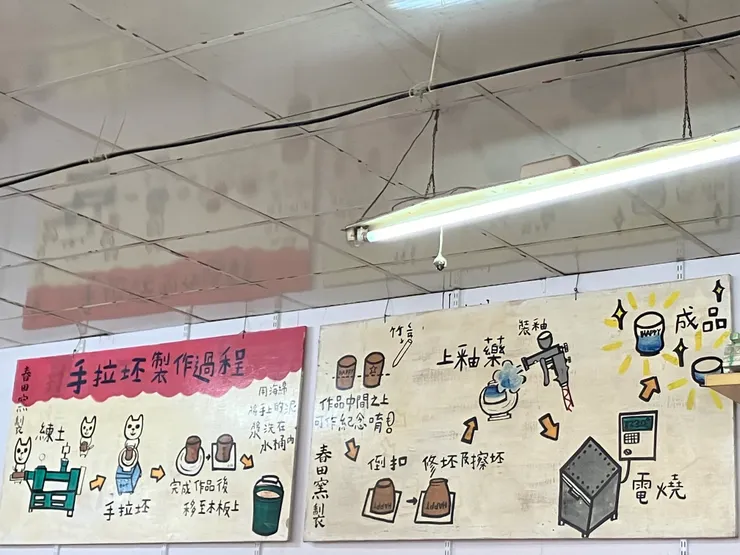 手拉坯製作過程
春田窯製
練土
手拉坯
完成作品後
移至木板上
用海綿
將手上的泥
漿洗在
水桶內
竹
作品中間之上
可作紀念唷!
HAPPY
倒扣
修坯及擦坯
HAPPY
HAPPY
春田窯製
上釉藥
裝釉
電燒
成品
HAPPY